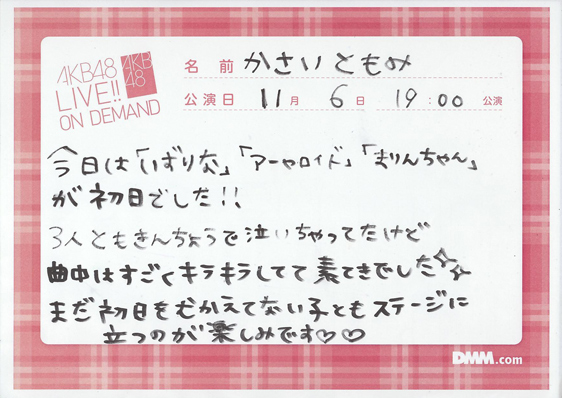 AKB48
LIVE!!
ON DEMAND
AKB
48
名前 かさいともみ
公演日 11月 6日 19:00 公演
今日は「いずりな」「アーヤロイド」「まりんちゃん」
が初日でした!!
3人ともきんちょうで泣いちゃってたけど
曲中はすごくキラキラしてて素てきでした✨
まだ初日をむかえてない子ともステージに
立つのが楽しみです♡♡
DMM.com